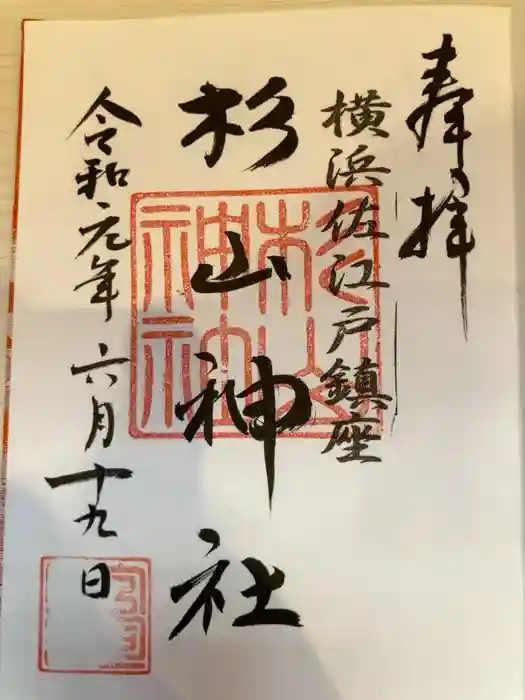 奉拝
横浜佐江戸鎮座
杉山神社
令和元年六月十九日